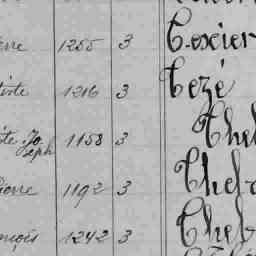 erre 1255 3 Texier
tiste 1216 3 Tezé
ste Jo
seph 1158 3 Thel
Pierre 1192 3 Theb
nçois 1242 3 Theb